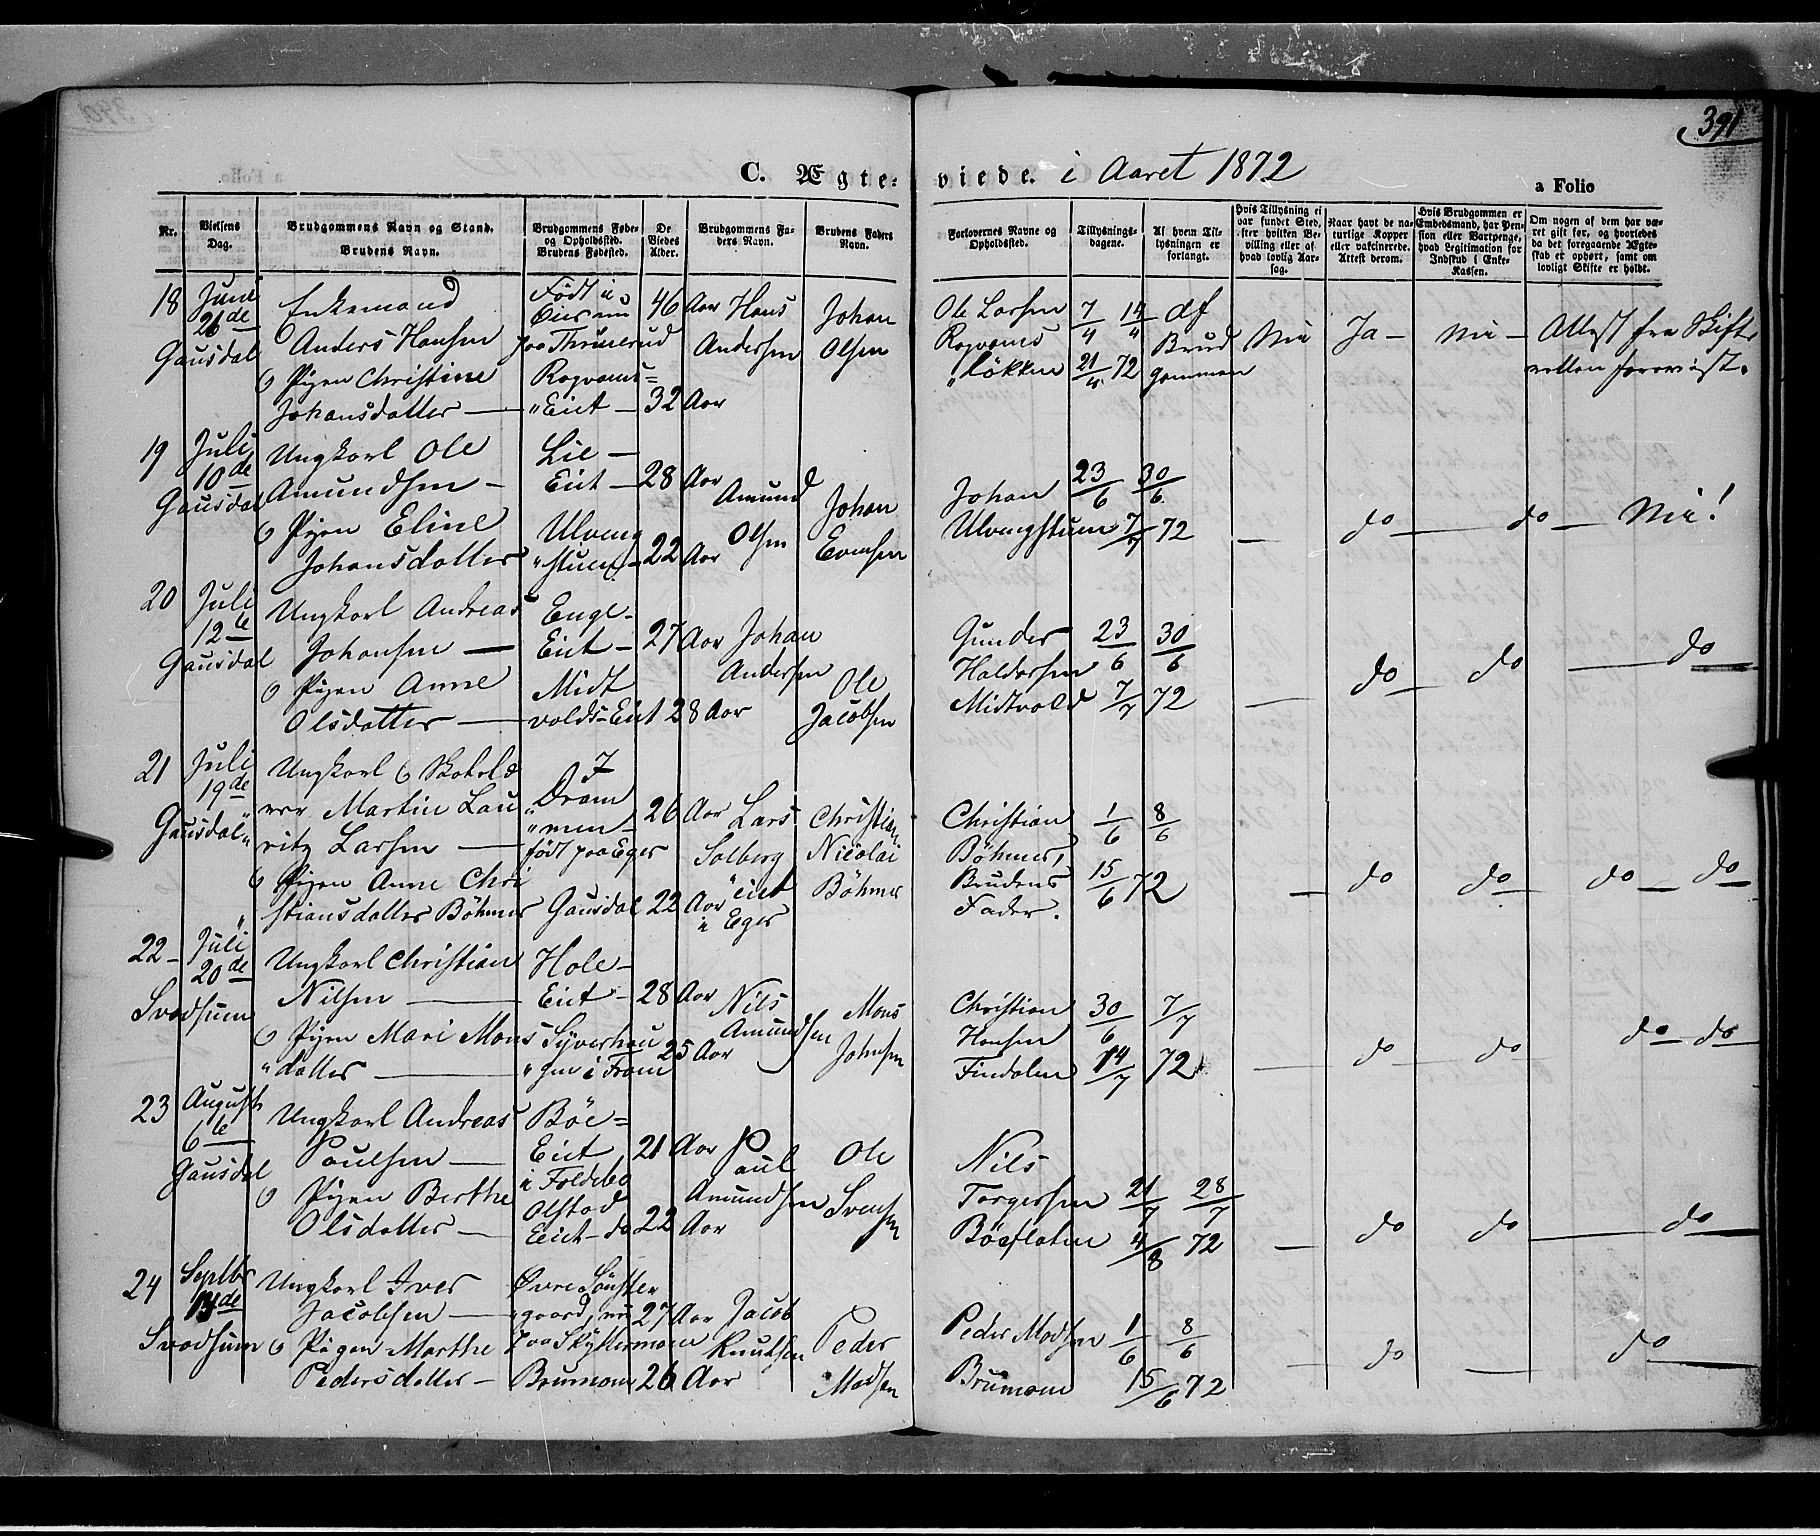 391
C. Ægte-viede. i Aaret 1872
a Folio
Nr.
Vielsens Dag.
Brudgommens Navn og Stand.
Brudens Navn.
Brudgommens Føde- og Opholdssted.
Brudens Fødested.
De Viedes Alder.
Brudgommens Faders Navn.
Brudens Faders Navn.
Forlovernes Navne og Opholdssted.
Tillysnings-dagene.
Af hvem Tillysningen er forlangt.
Hvis Tillysning ei var fundet Sted, efter hvilken Bevilling eller af hvad lovlig Aarsag.
Naar havt de naturlige Kopper eller vaccinerede. Attest derom.
Hvis Brudgommen er Embedsmand, har Pension eller Vartpenge, hvad Legitimation for Indskud i Enke-Kassen.
Om nogen af dem har været gift før, og hvorledes da det foregaaende Ægteskab er ophørt, samt om lovligt Skifte er holdt.
18 Juni 21de Gausdal
Enkemand Anders Hansen
Pigen Christine Johansdatter
Født i
paa
46 Aar
32 Aar
Hans Andersen
Johan Olsen
Ole Larsen
7/4 14/4 21/4 72
Brudgommen
Nei Ja - Nei -
Attest fra Skifteretten foreviist.
19 Juli 10de Gausdal
Ungkarl Ole Amundsen -
Pigen Eline Johansdatter
Lie - Eiet - 28 Aar
Ulveng stuen - 22 Aar
Amund Olsen
Johan Evensen
Johan Ulvengstuen
23/6 30/6 7/7 72
— do — do — Nei!
20 Juli 12te Gausdal
Ungkarl Andreas Johansen —
Pigen Anne Olsdatter —
Enge- Eiet - 27 Aar
Midtvolds-Eiet 28 Aar
Johan Andersen
Ole Jacobsen
Gunder Haldorsen Midtvold
23/6 30/6 7/7 72
— do — do — do
21 Juli 19de Gausdal
Ungkarl Martin Lauritz Larsen —
Pigen Anne Christiansdatter Böhmer
I Drammen - født paa Eger 26 Aar
Gausdal 22 Aar
Lars Solberg eiet i Eger
Christian Nicolai Böhmer
Christian Böhmer, Brudens Fader.
1/6 8/6 15/6 72
— do do do — do
22 - Juli 20de Svadsum
Ungkarl Christian Nilsen —
Pigen Mari Monsdatter —
Hole- Eiet - 28 Aar
25 Aar
Nils Amundsen
Mons Johnsen
Christian Hansen
30/6 7/7 14/7 72
— do — do do - do
23 August 6te Gausdal
Ungkarl Andreas Poulsen —
Pigen Berthe Olsdatter —
Böe= Eiet i Foldebo 21 Aar
Olstad Eiet - do 22 Aar
Paul Amundsen
Ole Svensen
Nils Torgersen Böeflaten
21/7 28/7 4/8 72
— do do — do
24 Septbr 13de Svadsum
Ungkarl Iver Jacobsen —
Pigen Marthe Pedersdatter —
Øvre
27 Aar
26 Aar
Jacob Knudsen
Peder Madsen
Peder Madsen
1/6 8/6 15/6 72
— do — do